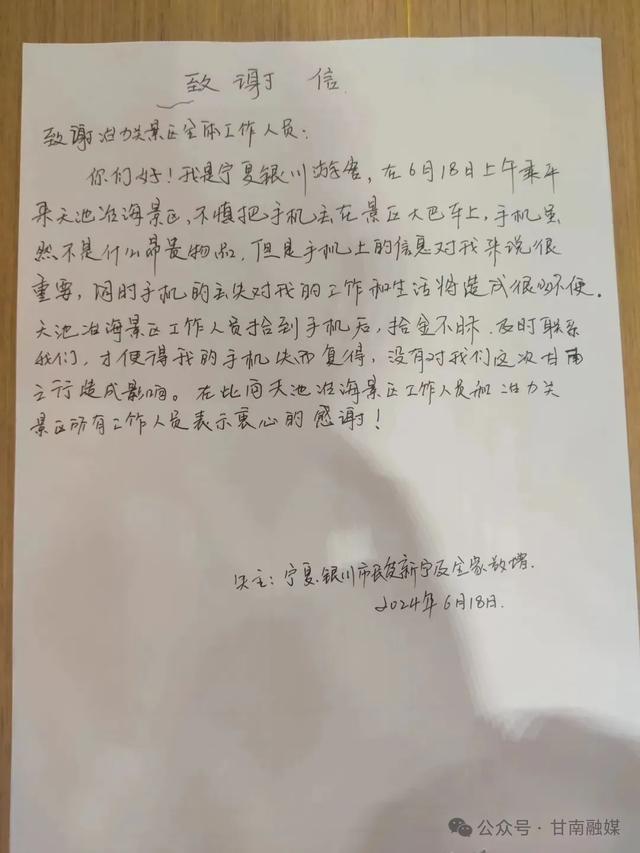 致谢信
致谢冶力关景区全体工作人员：
你们好！我是宁夏银川游客，在6月18日上午乘车
来天池冶海景区，不慎把手机丢在景区大巴车上，手机虽
然不是什么昂贵物品，但是手机上的信息对我来说很
重要，同时手机的丢失对我的工作和生活将造成很多不便。
天池冶海景区工作人员拾到手机后，拾金不昧，及时联系
我们，才使得我的手机失而复得，没有对我们这次甘南
之行造成影响。在此向天池冶海景区工作人员和冶力关
景区所有工作人员表示衷心的感谢！
失主：宁夏银川市民 新宁及全家敬
2024年6月18日.
公众号·甘南融媒